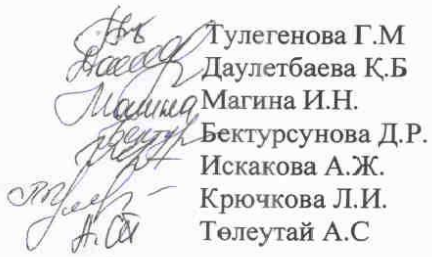 Тулегенова Г.М
Даулетбаева Қ.Б
Магина И.Н.
Бектурсунова Д.Р.
Искакова А.Ж.
Крючкова Л.И.
Төлеутай А.С